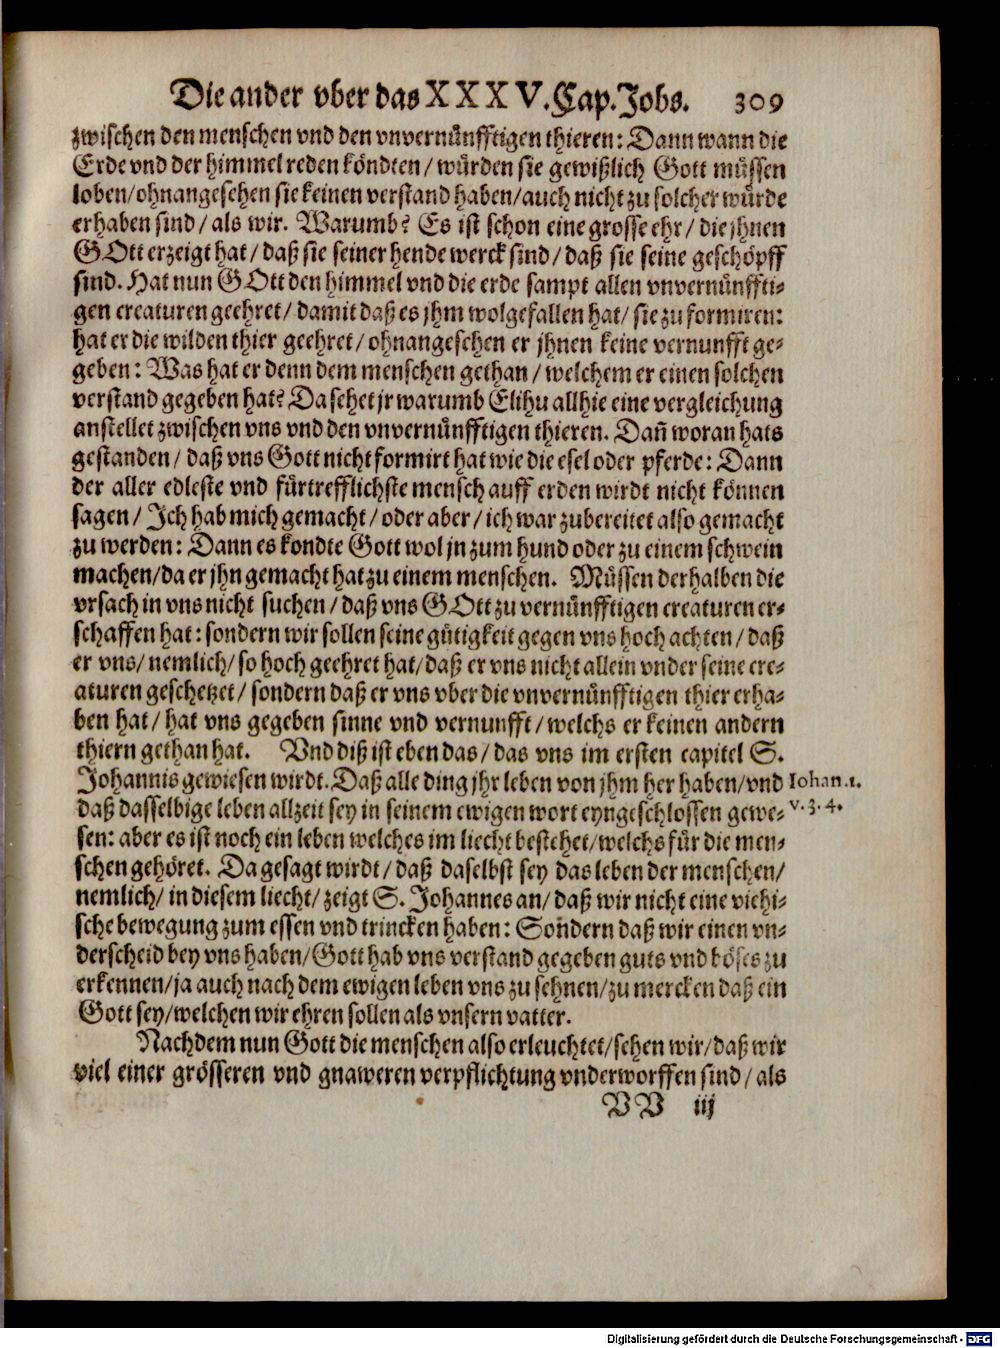 Die ander vber das XXXV. Cap. Jobs. 309
zwischen den menschen vnd den vnvernünfftigen thieren: Dann wann die
Erde vnd der himmel reden köndten/ würden sie gewißlich Gott müssen
loben/ ohnangesehen sie keinen verstand haben/ auch nicht zu solcher würde
erhaben sind/ als wir. Warumb? Es ist schon eine grosse ehr/ die jhnen
GOtt erzeigt hat/ daß sie seiner hende werck sind/ daß sie seine geschöpff
sind. Hat nun GOtt den himmel vnd die erde sampt allen vnvernünffti-
gen creaturen geehret/ damit daß es jhm wolgefallen hat/ sie zu formiren:
hat er die wilden thier geehret/ ohnangesehen er jhnen keine vernunfft ge-
geben: Was hat er denn dem menschen gethan/ welchem er einen solchen
verstand gegeben hat? Da sehet jr warumb Elihu allhie eine vergleichung
anstellet zwischen vns vnd den vnvernünfftigen thieren. Dañ woran hats
gestanden/ daß vns Gott nicht formirt hat wie die esel oder pferde: Dann
der aller edleste vnd fürtrefflichste mensch auff erden wirdt nicht können
sagen/ Ich hab mich gemacht/ oder aber/ ich war zubereitet also gemacht
zu werden: Dann es kondte Gott wol jn zum hund oder zu einem schwein
machen/ da er jhn gemacht hat zu einem menschen. Müssen derhalben die
vrsach in vns nicht suchen/ daß vns GOtt zu vernünfftigen creaturen er-
schaffen hat: sondern wir sollen seine gütigkeit gegen vns hoch achten/ daß
er vns/ nemlich/ so hoch geehret hat/ daß er vns nicht allein vnder seine cre-
aturen geschetzet/ sondern daß er vns vber die vnvernünfftigen thier erha-
ben hat/ hat vns gegeben sinne vnd vernunfft/ welchs er keinen andern
thiern gethan hat. Vnd diß ist eben das/ das vns im ersten capitel S.
Johannis gewiesen wirdt. Daß alle ding jhr leben von jhm her haben/ vnd
Iohan. 1.
daß dasselbige leben allzeit sey in seinem ewigen wort eyngeschlossen gewe-
v. 3. 4.
sen: aber es ist noch ein leben welches im liecht bestehet/ welchs für die men-
schen gehöret. Da gesagt wirdt/ daß daselbst sey das leben der menschen/
nemlich/ in diesem liecht/ zeigt S. Johannes an/ daß wir nicht eine viehi-
sche bewegung zum essen vnd trincken haben: Sondern daß wir einen vn-
derscheid bey vns haben/ Gott hab vns verstand gegeben guts vnd böses zu
erkennen/ ja auch nach dem ewigen leben vns zu sehnen/ zu mercken daß ein
Gott sey/ welchen wir ehren sollen als vnsern vatter.
Nachdem nun Gott die menschen also erleuchtet/ sehen wir/ daß wir
viel einer grösseren vnd gnaweren verpflichtung vnderworffen sind/ als
VV iij
Digitalisierung gefördert durch die Deutsche Forschungsgemeinschaft - DFG